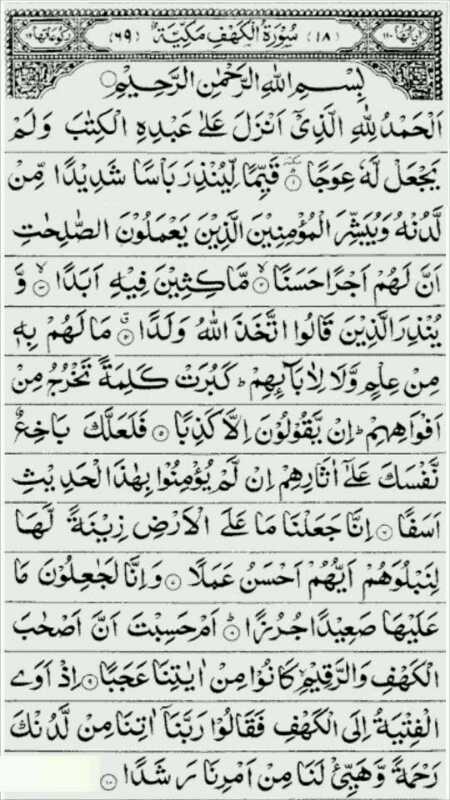 (١٨) سُوْرَةُ الْكَهْفِ مَكِّيَّةٌ (٦٩)
بِسْمِ اللهِ الرَّحْمٰنِ الرَّحِيْمِ
اَلْحَمْدُ لِلّٰهِ الَّذِیْۤ اَنْزَلَ عَلٰى عَبْدِهِ الْكِتٰبَ وَلَمْ
يَجْعَلْ لَّهٗ عِوَجًا ۱ قَيِّمًا لِّيُنْذِرَ بَاْسًا شَدِيْدًا مِّنْ
لَّدُنْهُ وَيُبَشِّرَ الْمُؤْمِنِيْنَ الَّذِيْنَ يَعْمَلُوْنَ الصّٰلِحٰتِ
اَنَّ لَهُمْ اَجْرًا حَسَنًا ۲ مَّاكِثِيْنَ فِيْهِ اَبَدًا ۳ وَّ
يُنْذِرَ الَّذِيْنَ قَالُوا اتَّخَذَ اللهُ وَلَدًا ۴ مَا لَهُمْ بِهٖ
مِنْ عِلْمٍ وَّلَا لِاٰبَآئِهِمْ ؕ كَبُرَتْ كَلِمَةً تَخْرُجُ مِنْ
اَفْوَاهِهِمْ ؕ اِنْ يَّقُوْلُوْنَ اِلَّا كَذِبًا ۵ فَلَعَلَّكَ بَاخِعٌ
نَّفْسَكَ عَلٰۤى اٰثَارِهِمْ اِنْ لَّمْ يُؤْمِنُوْا بِهٰذَا الْحَدِيْثِ
اَسَفًا ۶ اِنَّا جَعَلْنَا مَا عَلَى الْاَرْضِ زِيْنَةً لَّهَا
لِنَبْلُوَهُمْ اَيُّهُمْ اَحْسَنُ عَمَلًا ۷ وَاِنَّا لَجٰعِلُوْنَ مَا
عَلَيْهَا صَعِيْدًا جُرُزًا ۸ اَمْ حَسِبْتَ اَنَّ اَصْحٰبَ
الْكَهْفِ وَالرَّقِيْمِ كَانُوْا مِنْ اٰيٰتِنَا عَجَبًا ۹ اِذْ اَوَى
الْفِتْيَةُ اِلَى الْكَهْفِ فَقَالُوْا رَبَّنَاۤ اٰتِنَا مِنْ لَّدُنْكَ
رَحْمَةً وَّهَيِّئْ لَنَا مِنْ اَمْرِنَا رَشَدًا ۱۰